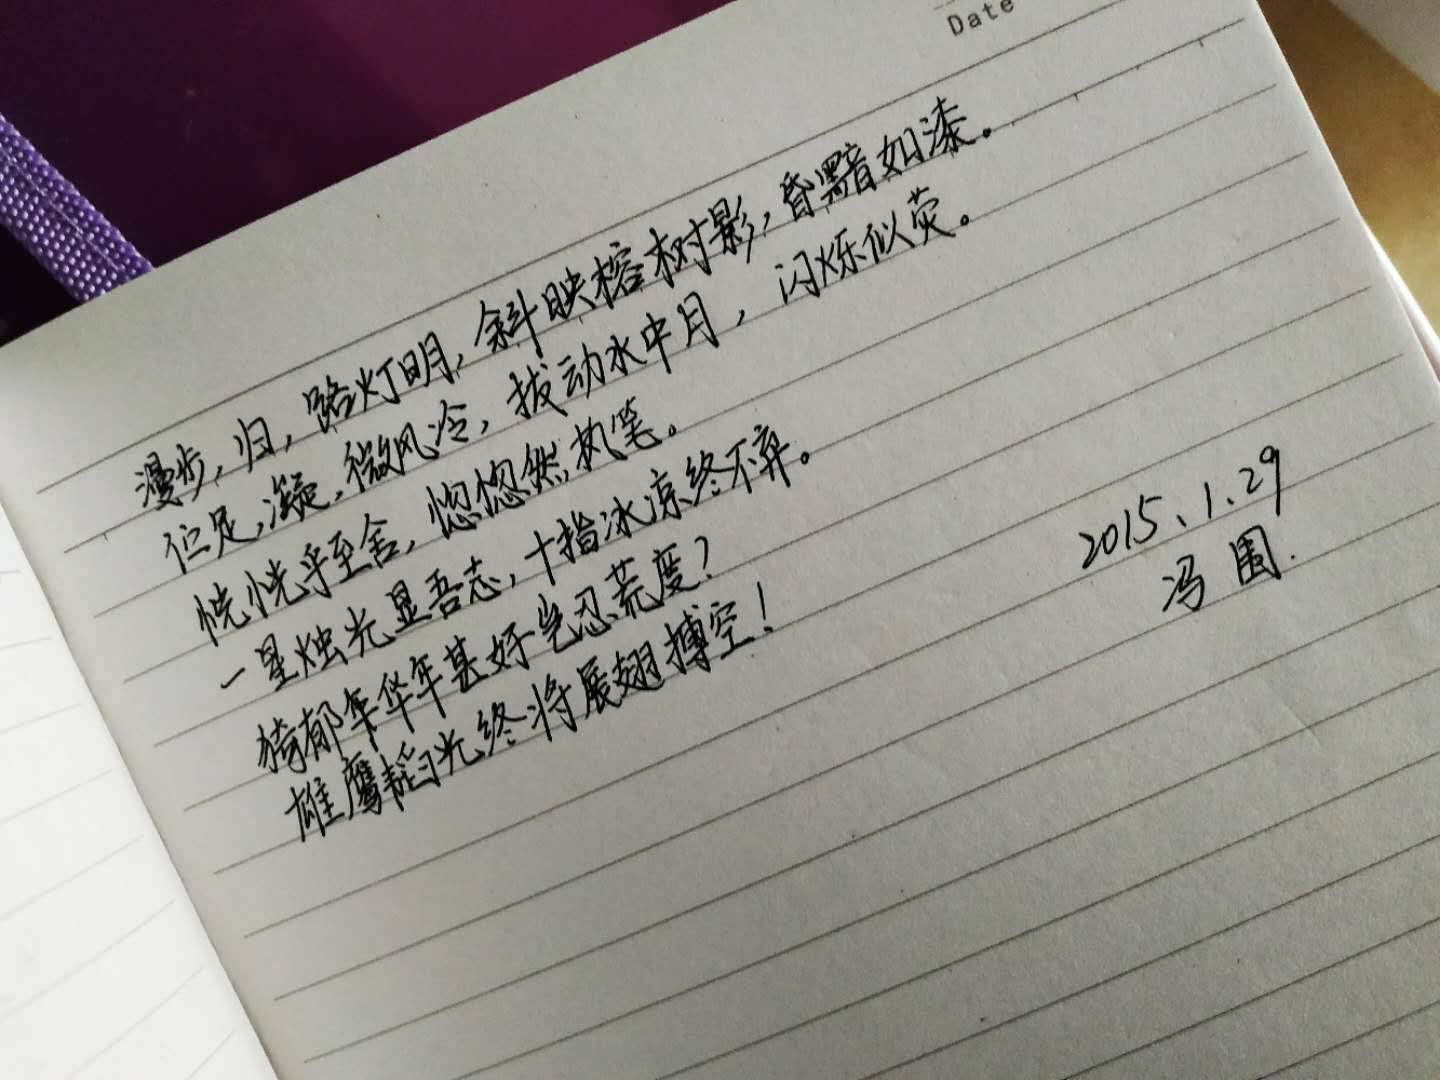 Date
漫步，归，路灯明，斜映榕树影，昏黯如漆。
伫足，凝，微风冷，拔动水中月，闪烁似荧。
恍恍乎至舍，惚惚然执笔。
一星烛光显吾志，十指冰凉终不弃。
猗郁年华年甚好岂忍荒度？
雄鹰韬光终将展翅搏空！
2015、1.29
冯围.